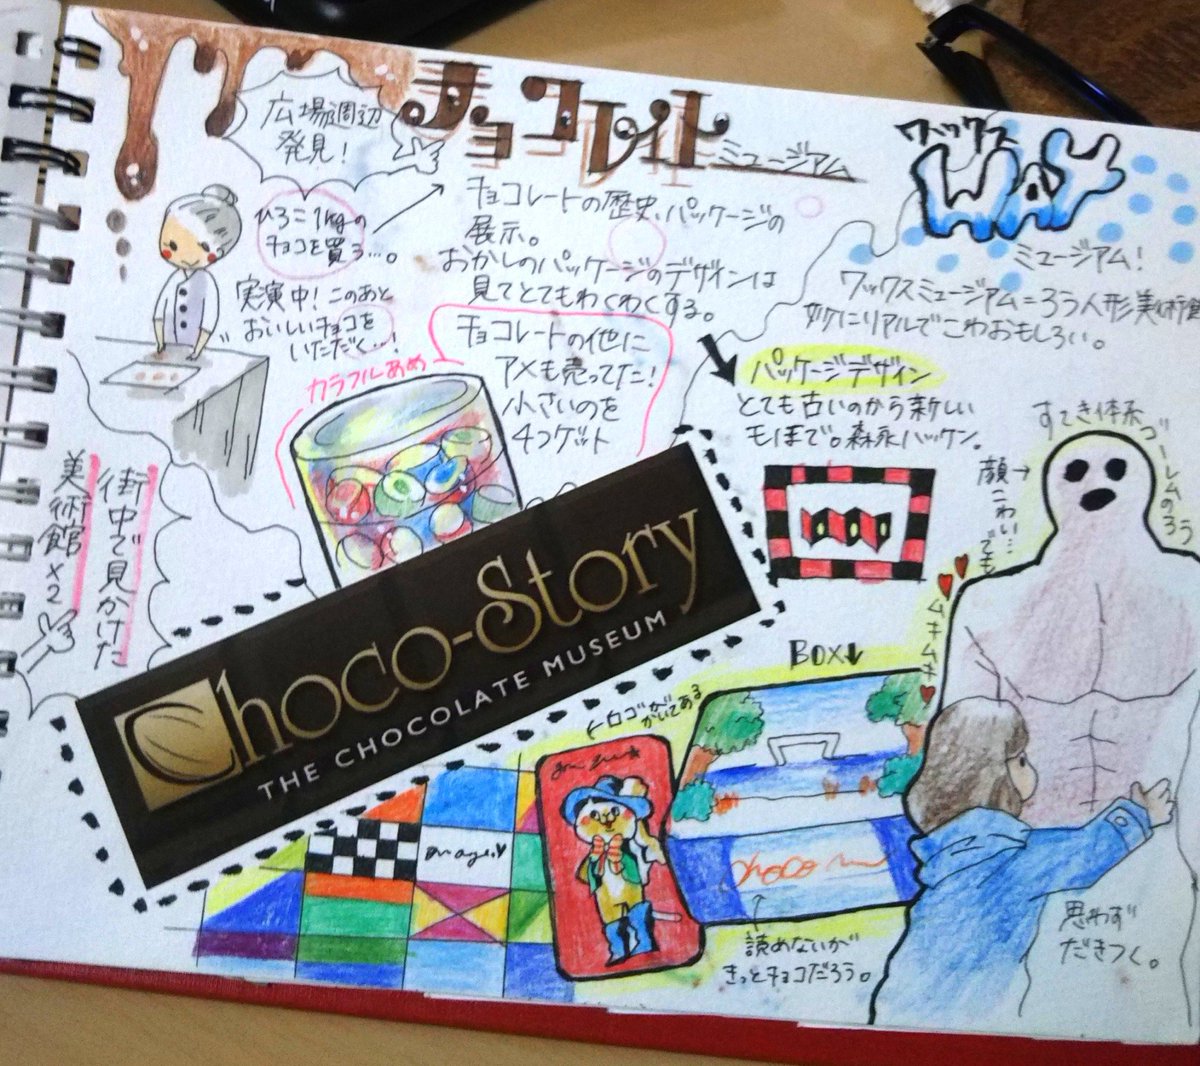 広場周辺
発見!
チョコレイト
ミュージアム
ひろこ1kgの
チョコを買う…。
チョコレートの歴史、パッケージの
展示。
おかしのパッケージのデザインは
見てとてもわくわくする。
実演中!このあと
おいしいチョコを
いただく…!
チョコレートの他に
アメも売ってた!
小さいのを
4つゲット
カラフルあめ
街中で見かけた
美術館×2
ワックス
WaX
ミュージアム!
ワックスミュージアム=ろう人形美術館
妙にリアルでこわおもしろい。
パッケージデザイン
とても古いのから新しい
モノまで。森永ハッケン。
すてき体系
ゴーレムのろう
顔こわい…でも
ムキムキ
Choco-Story
THE CHOCOLATE MUSEUM
BOX
ロゴが
かいてある
choco
読めないが
きっとチョコだろう。
思わず
だきつく。